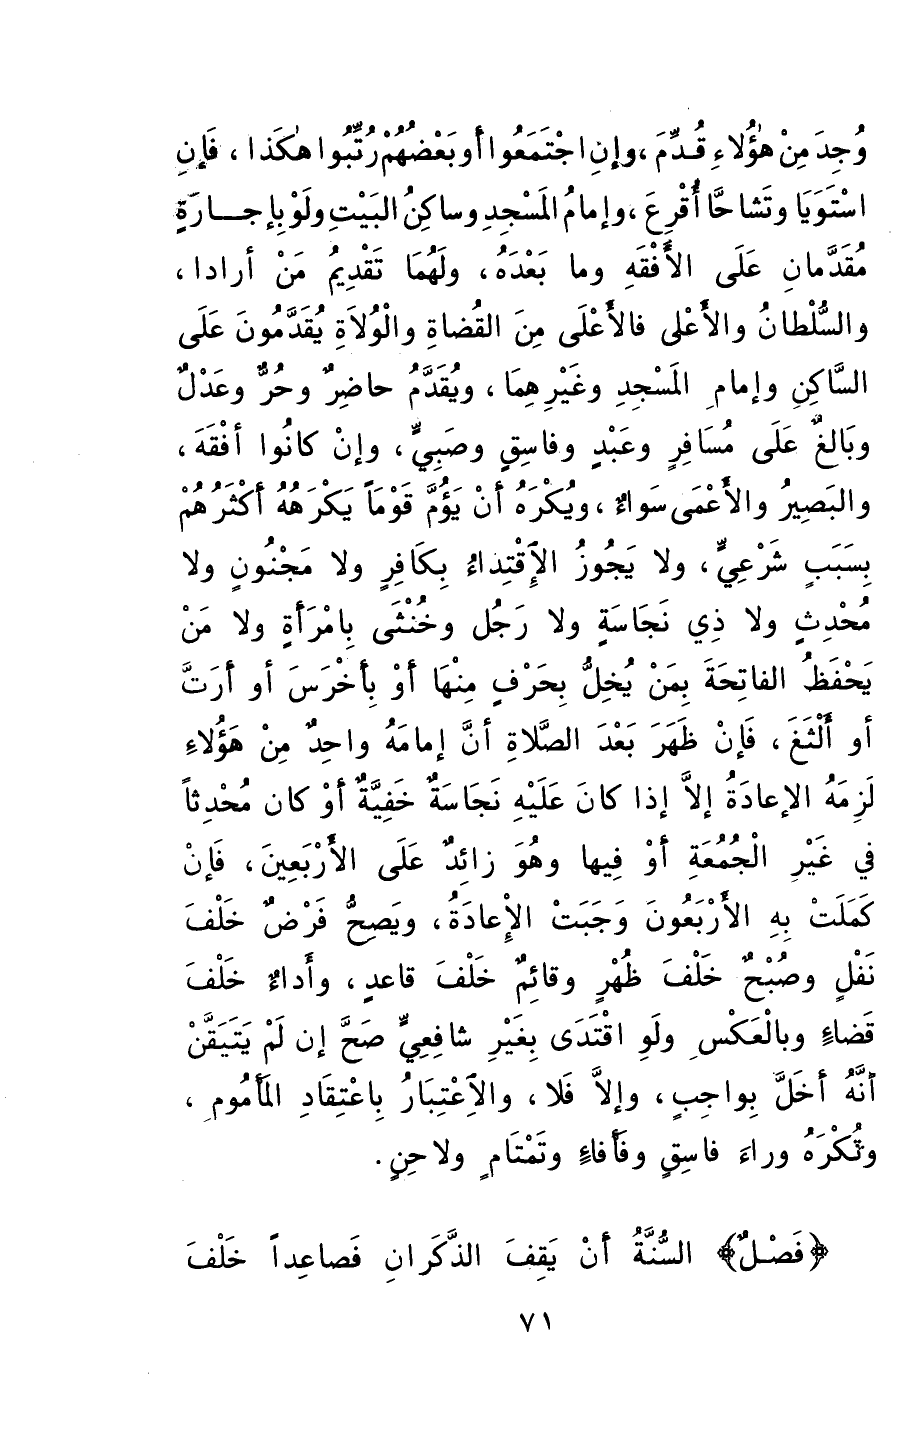 وُجِدَ مِنْ هٰؤُلاءِ قُـدِّمَ ، وإنِ اجْتَمَعُوا أو بَعْضُهُمْ رُتِّبُوا هكَذا ، فَإنِ
اسْتَوَيَا وتَشاحَّا أُقْرِعَ ، وإمامُ المَسْجِدِ وساكِنُ البَيْتِ ولَوْ بِإجــارَةٍ
مُقَدَّمانِ عَلَى الأَفْقَهِ وما بَعْدَهُ ، ولَهُمَا تَقْدِيمُ مَنْ أرادا ،
والسُّلْطانُ والأَعْلى فالأَعْلَى مِنَ القُضاةِ والْوُلاَةِ يُقَدَّمُونَ عَلَى
السَّاكِنِ وإمامِ المَسْجِدِ وغَيْرِهِمَا ، ويُقَدَّمُ حاضِرٌ وحُرٌّ وعَدْلٌ
وبَالِغٌ عَلَى مُسَافِرٍ وعَبْدٍ وفاسِقٍ وصَبِيٍّ ، وإنْ كانُوا أفْقَهَ ،
والبَصِيرُ والأَعْمَى سَواءٌ ، ويُكْرَهُ أنْ يَؤُمَّ قَوْمَاً يَكْرَهُهُ أكْثَرُهُمْ
بِسَبَبٍ شَرْعِيٍّ ، ولا يَجُوزُ الإِقْتِداءُ بِكَافِرٍ ولا مَجْنُونٍ ولا
مُحْدِثٍ ولا ذِي نَجَاسَةٍ ولا رَجُل وخُنْثَى بِامْرَأَةٍ ولا مَنْ
يَحْفَظُ الفاتِحَةَ بِمَنْ يُخِلُّ بِحَرْفٍ مِنْهَا أوْ بِأخْرَسَ أو أرَتَّ
أو ألْثَغَ ، فَإنْ ظَهَرَ بَعْدَ الصَّلاةِ أنَّ إمامَهُ واحِدٌ مِنْ هَؤُلاءِ
لَزِمَهُ الإعادَةُ إلاَّ إذا كانَ عَلَيْهِ نَجَاسَةٌ خَفِيَّةٌ أوْ كان مُحْدِثاً
في غَيْرِ الْجُمُعَةِ أوْ فِيها وهُوَ زائِدٌ عَلَى الأَرْبَعِينَ ، فَإنْ
كَمَلَتْ بِهِ الأَرْبَعُونَ وَجَبَتْ الإْعادَةُ ، ويَصِحُّ فَرْضٌ خَلْفَ
نَفْلٍ وصُبْحٌ خَلْفَ ظُهْرٍ وقائِمٌ خَلْفَ قاعدٍ ، وأَداءٌ خَلْفَ
قَضاءٍ وبالْعَكْسِ ولَوِ اقْتَدَى بِغَيْرِ شافِعِيٍّ صَحَّ إن لَمْ يَتَيَقَّنْ
أنَّهُ أخَلَّ بِواجِبٍ ، وإلاَّ فَلا ، والإِعْتِبَارُ بِاعْتِقَادِ المَأْمُومِ ،
وتُكْرَهُ وراءَ فاسِقٍ وفَأْفاءٍ وتَمْتَامٍ ولاحِنٍ .
﴿ فَصْـلٌ ﴾ السُّنَّةُ أنْ يَقِفَ الذَّكَرانِ فَصاعِداً خَلْفَ
٧١